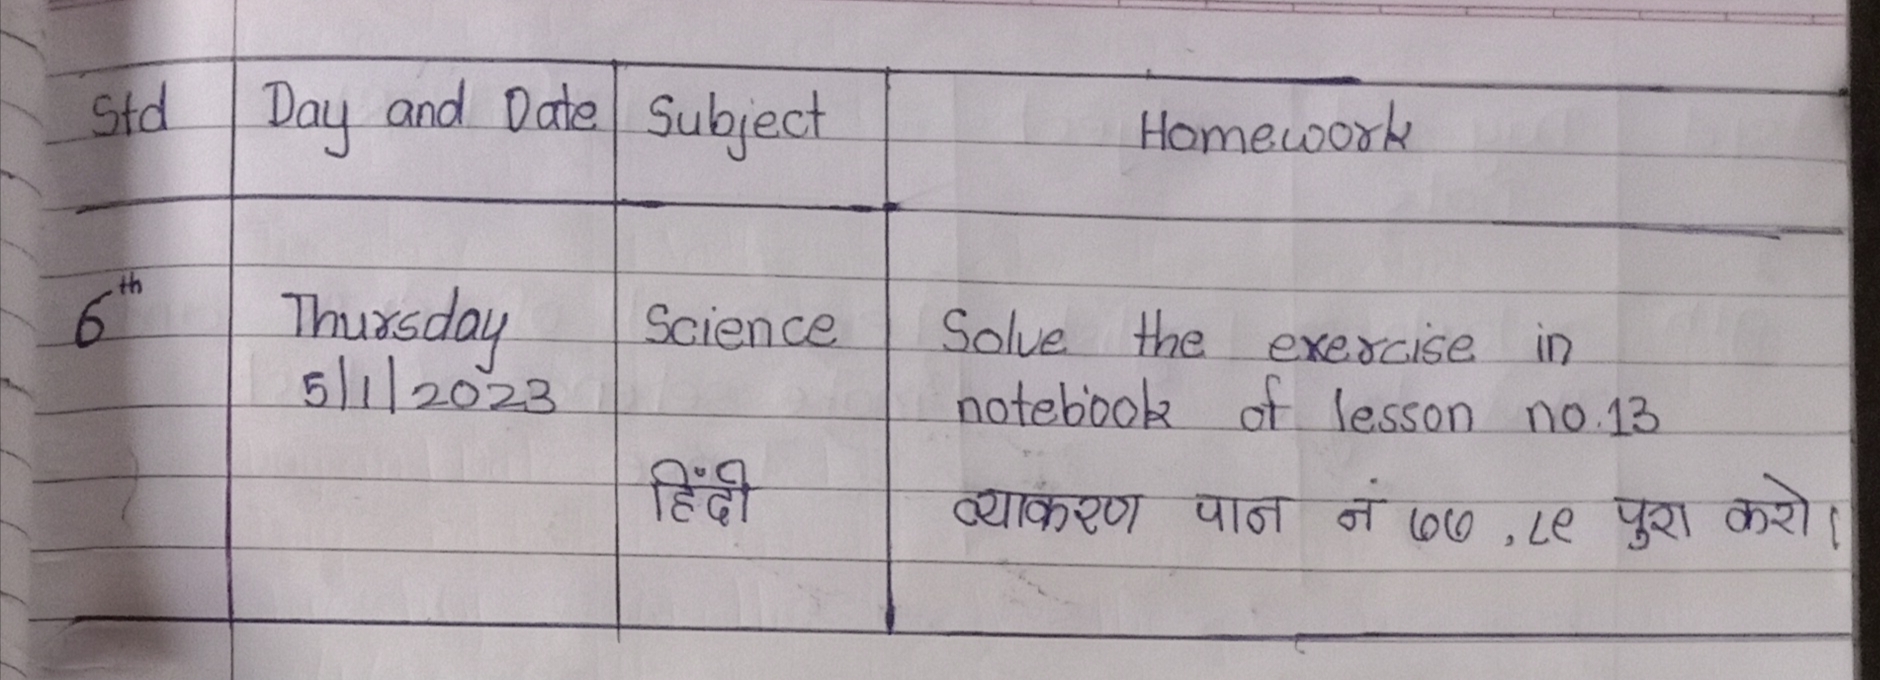 Std Day and Date Subject Homework
6th Thursday Science Solve the exercise in
5/1/2023 notebook of lesson no.13
हिंदी व्याकरण पान नं ७७,८९ पुरा करो।